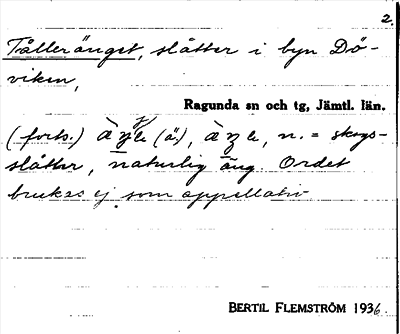 2.
Tålleränget, slåtter i byn Dö-
viken,
Ragunda sn och tg, Jämtl. län.
(forts.) n. = skogs-
slåtter, naturlig äng. Ordet
brukas ej som appellativ
BERTIL FLEMSTRÖM 1936.